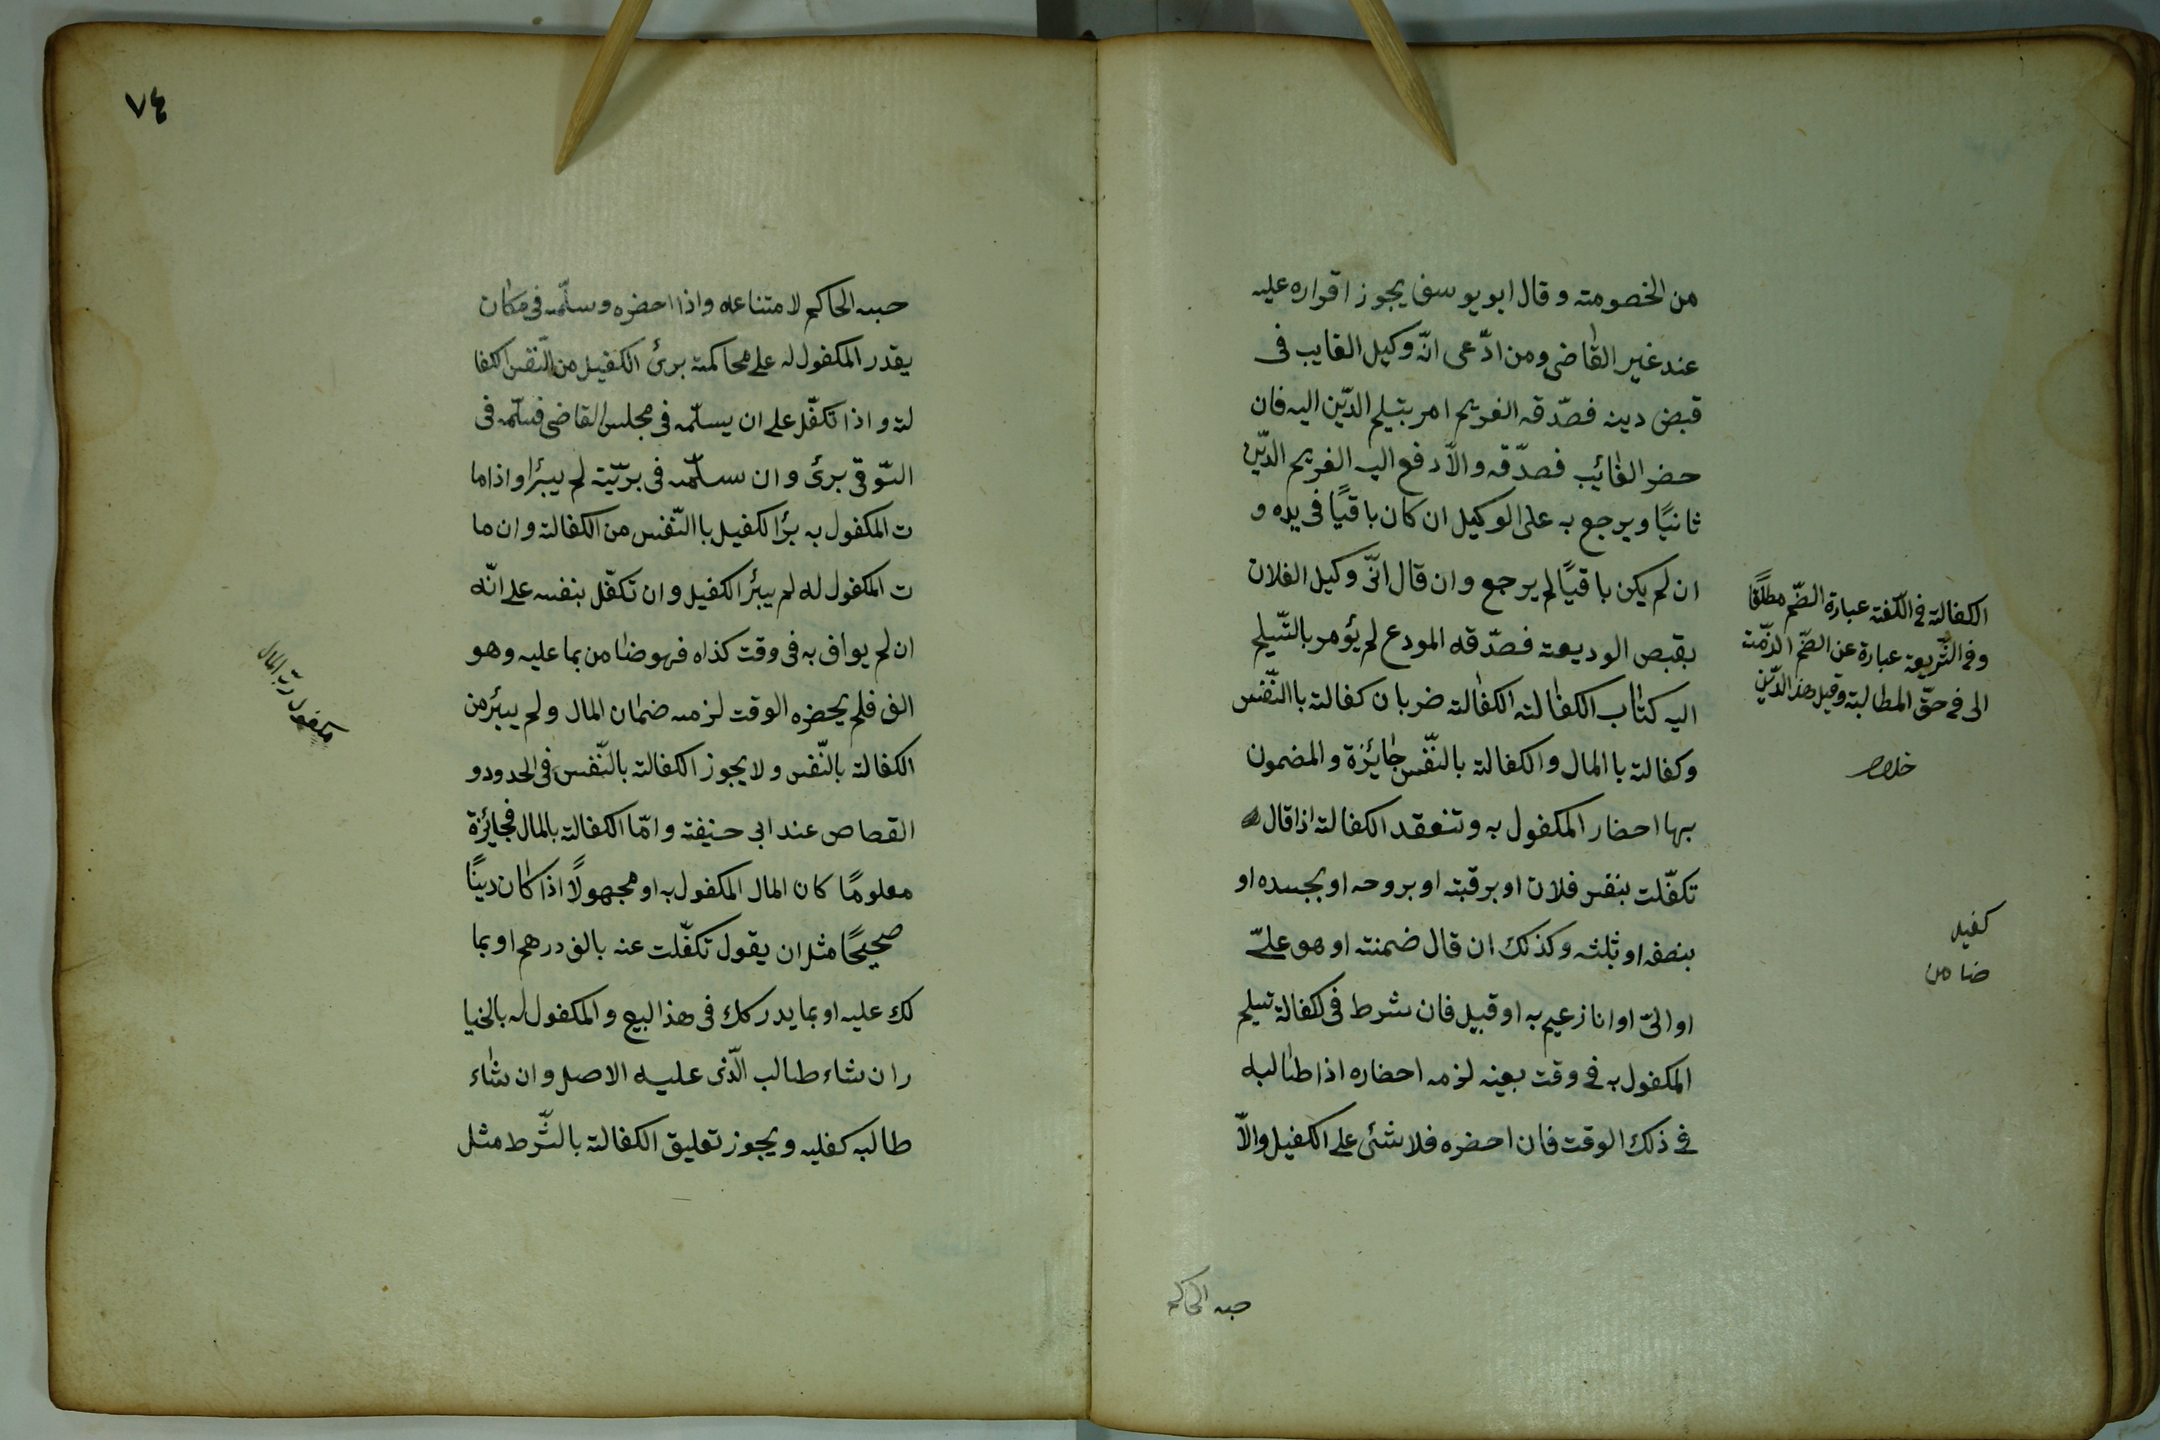 من الخصومته وقال ابو يوسف يجوز اقراره عليه
عند غير القاضى ومن ادّعى انّه وكيل الغايب فى
قبض دينه فصدّقه الغريم امر بتسليم الدّين اليه فان
حضر الغائب فصدّقه والاّ دفع اليه الغريم الدّين
ثانيًا ويرجع به على الوكيل ان كان باقيًا فى يده و
ان لم يكن باقيًا لم يرجع وان قال انّى وكيل الفلان
بقبص الوديعته فصدّقه المودع لم يؤمر بالتّسليم
اليه كتاب الكفالته الكفالته ضربان كفالته باالنّفس
وكفالته باالمال والكفالته بالنّفس جائزة والمضمون
بها احضار المكفول به وتنعقد الكفالته اذا قال
تكفّلت بنفس فلان او برقبته او بروحه او بجسده او
بنصفه او بثلثه وكذلك ان قال ضمنته او هو علىّ
او الىّ او انا زعيم به او قبيل فان شرط فى كفالة تسليم
المكفول به فى وقت بعينه لزمه احضاره اذا طالبه
فى ذلك الوقت فان احضره فلا شئى على الكفيل والاّ
حبسه الحاكم
الكفالته فى الّلغته عبارة الضّم مطلقًا
وفى الشّريعته عبارة عن الضّم الذمّته
الى فى حقّ المطالبته وقيل هذا الدّين
كفيل
ضامن
٧٤
حبسه الحاكم لامتناعه واذا احضره وسلّمه فى مكان
يقدر المكفول له على محاكمته برئ الكفيل من النّفس الكفا
لته واذا تكفّل على ان يسلّمه فى مجلس القاضى فسلّمه فى
السّوقى برئ وان سلّمه فى بريّته لم يبرٔا واذا ما
ت المكفول به برٔا الكفيل باالنّفس من الكفالته وان ما
ت المكفول له لم يبرٔ الكفيل وان تكفّل بنفسه على انّه
ان لم يواف به فى وقت كذاه فهو ضامن بما عليه وهو
الف فلم يحضره الوقت لزمه ضمان المال ولم يبرٔ من
الكفالته بالنّفس ولا يجوز الكفالته بالنّفس فى الحدود و
القصاص عند ابى حنيفته وامّا الكفالته بالمال فجائزة
معلومًا كان المال المكفول به او مجهولًا اذا كان دينًا
صحيحًا مثل ان يقول تكفّلت عنه بالف درهم او بما
لك عليه او بما يدركك فى هذا البيع والمكفول له بالخيا
ر ان شاء طالب الّذى عليه الاصل وان شاء
طالبه كفليه ويجوز تعليق الكفالته بالشّرط مثل
مكفول ربّ المال